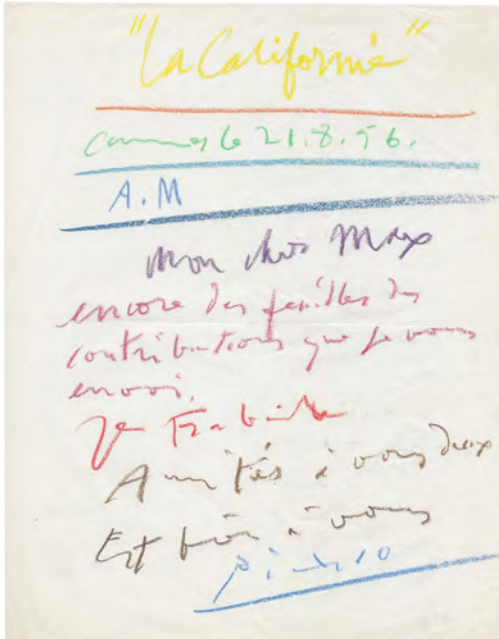 "La Californie"
Cannes le 21.8.56.
A.M
Mon cher Max
encore des feuilles des
contributions que je vous
envoi.
Je travaille
Amitiés à vous deux
Est bien à vous
Picasso